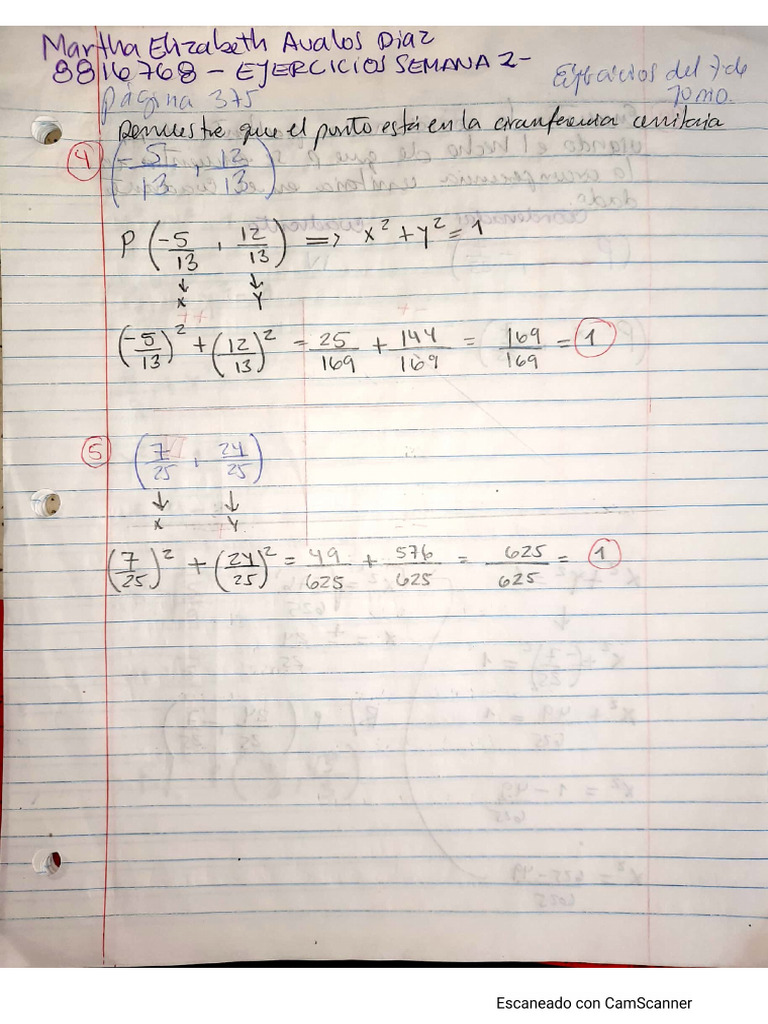 Martha Elizabeth Avalos Diaz
8816768 - EJERCICIOS SEMANA 2-
Ejercicios del 7 de Junio.
Página 375
Demuestre que el punto está en la circunferencia unitaria
4 (-5/13, 12/13)
P (-5/13, 12/13) => x² + y² = 1
↓ ↓
x y
(-5/13)² + (12/13)² = 25/169 + 144/169 = 169/169 = 1
5 (7/25, 24/25)
↓ ↓
x y
(7/25)² + (24/25)² = 49/625 + 576/625 = 625/625 = 1
Escaneado con CamScanner